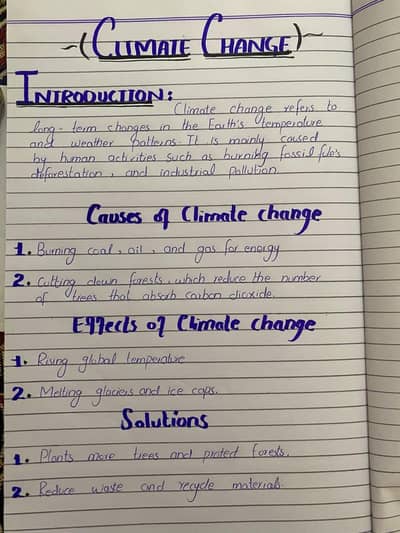 ~(CLIMATE CHANGE)~
INTRODUCTION:
Climate change refers to
long-term changes in the Earth's temperature
and weather patterns It is mainly caused
by human activities such as burning fossil
deforestation, and industrial pollution
Causes of Climate change
1. Burning coal, oil, and gas for energy
2. Cutting down forests, which reduce the number
of trees that absorb carbon dioxide.
Effects of Climate change
1. Rising global temperature
2. Melting glaciers and ice caps.
Solutions
1. Plants more trees and forests.
2. Reduce waste and recycle materials.